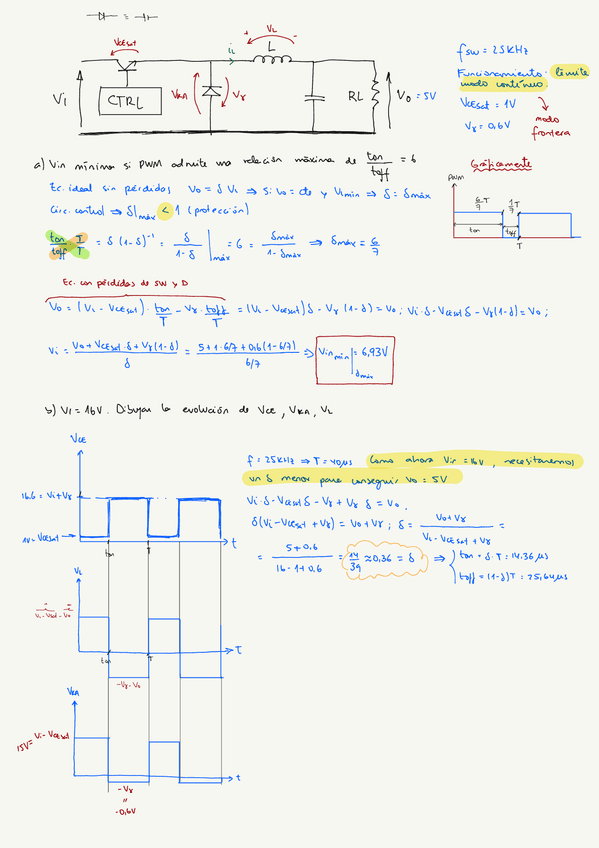 VCEsat
iL
VL
+ -
L
Vi
CTRL
VKA
Vγ
RL
Vo = 5V
fsw = 25KHz
Funcionamiento: límite
modo continuo.
VCEsat = 1V
Vγ = 0,6V
modo
frontera
a) Vin mínima si PWM admite una relación máxima de ton/toff = 6
Gráficamente
Ec. ideal sin pérdidas Vo = δ Vi ⇒ Si Vo = cte y Vimin ⇒ δ = δmáx
Circ. control ⇒ δ|máx < 1 (protección)
PWM
6/7 T
1/7 T
ton
toff
T
ton/toff T/T = δ (1-δ)⁻¹ = δ/(1-δ)|máx = 6 = δmáx/(1-δmáx) ⇒ δmáx = 6/7
Ec. con pérdidas de SW y D
Vo = (Vi - VCEsat) · ton/T - Vγ · toff/T = (Vi - VCEsat)δ - Vγ (1-δ) = Vo ; Vi·δ - VCEsat δ - Vγ(1-δ) = Vo ;
Vi = (Vo + VCEsat·δ + Vγ(1-δ))/δ = (5 + 1·6/7 + 0,6(1-6/7))/(6/7) ⇒ Vinmin|δmáx = 6,93V
b) Vi = 16V. Dibujar la evolución de VCE, VKA, VL
VCE
f = 25KHz ⇒ T = 40µs Como ahora Vin = 16V, necesitaremos
un δ menor para conseguir Vo = 5V
16.6 = Vi + Vγ
Vi·δ - VCEsat δ - Vγ + Vγ δ = Vo.
δ(Vi - VCEsat + Vγ) = Vo + Vγ ; δ = (Vo + Vγ)/(Vi - VCEsat + Vγ) =
1V = VCEsat
t
ton
T
= (5 + 0,6)/(16 - 1 + 0,6) = 14/39 ≈ 0,36 = δ ⇒ ton = δ·T = 14.36µs
toff = (1-δ)T = 25,64µs
VL
Vi - VCEsat - Vo
t
ton
T
-Vγ - Vo
VKA
15V = Vi - VCEsat
t
-Vγ
=
-0,6V